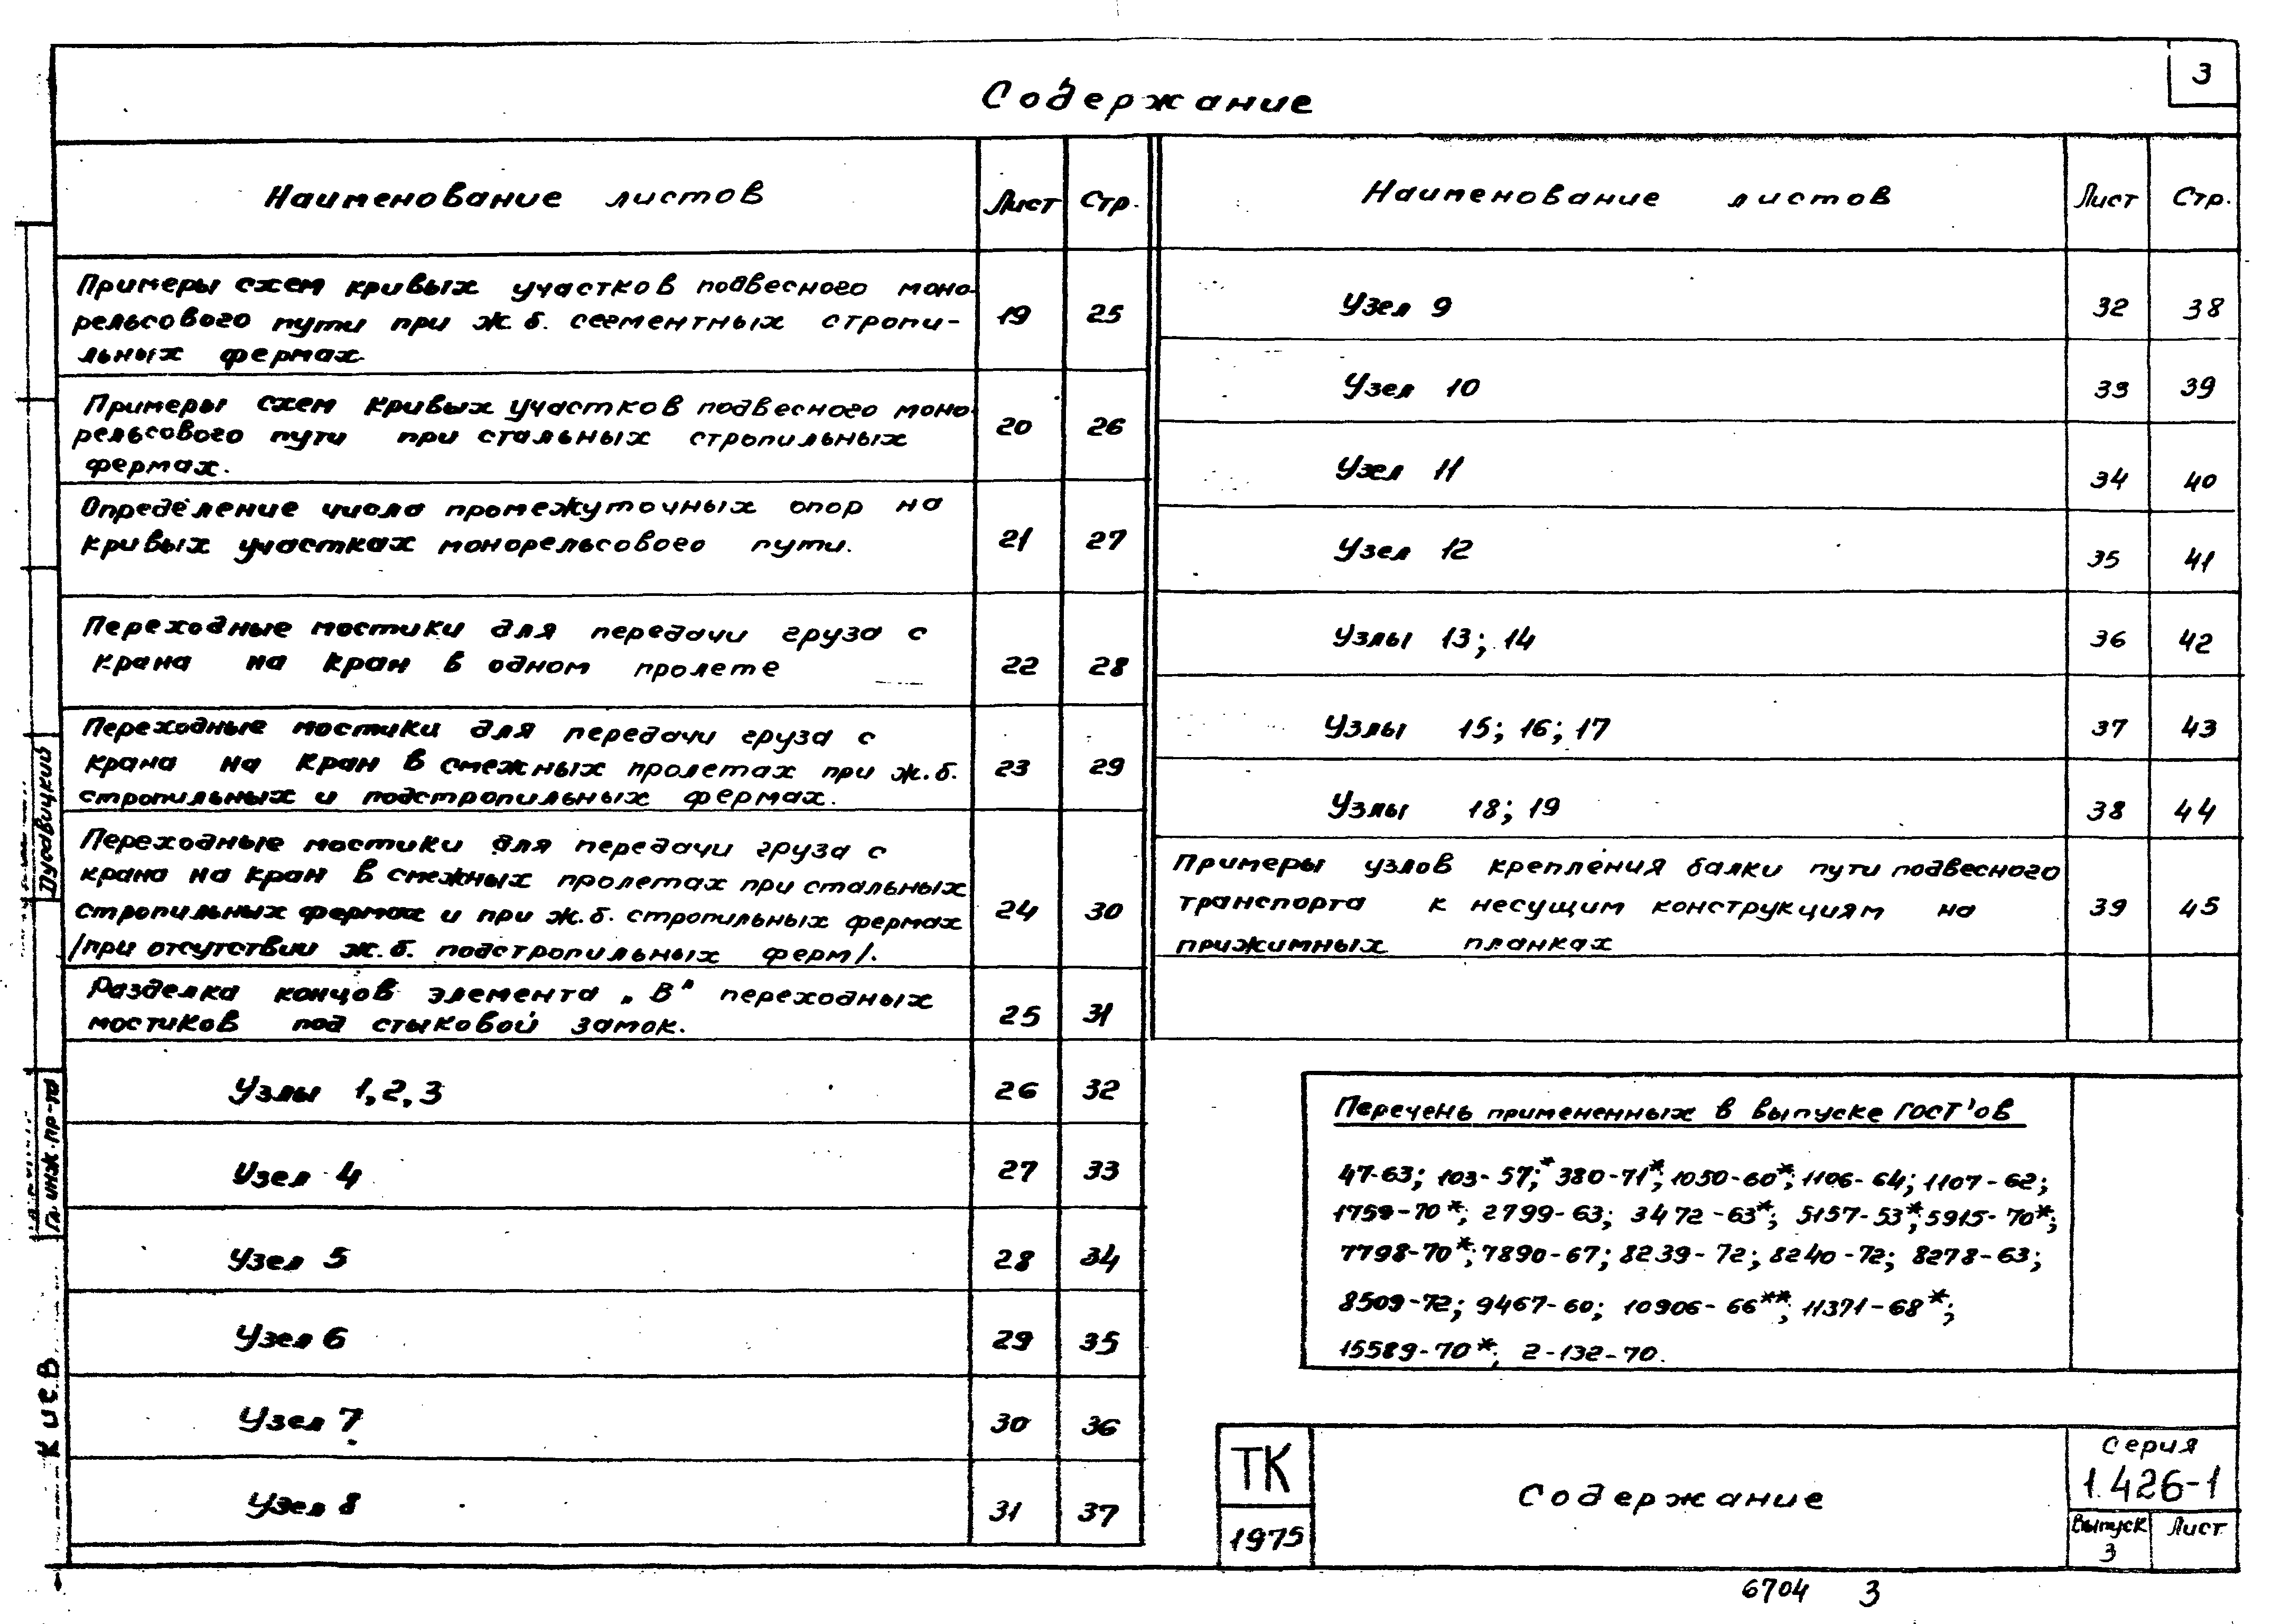 3
Содержание
Наименование листов Лист Стр.
Примеры схем кривых участков подвесного моно-
рельсового пути при ж.б. сегментных стропи-
льных фермах 19 25
Примеры схем кривых участков подвесного моно-
рельсового пути при стальных стропильных
фермах. 20 26
Определение числа промежуточных опор на
кривых участках монорельсового пути. 21 27
Переходные мостики для передачи груза с
крана на кран в одном пролете 22 28
Переходные мостики для передачи груза с
крана на кран в смежных пролетах при ж.б.
стропильных и подстропильных фермах. 23 29
Переходные мостики для передачи груза с
крана на кран в смежных пролетах при стальных
стропильных фермах и при ж.б. стропильных фермах
/при отсутствии ж.б. подстропильных ферм/. 24 30
Разделка концов элемента „В" переходных
мостиков под стыковой замок. 25 31
Узлы 1,2,3 26 32
Узел 4 27 33
Узел 5 28 34
Узел 6 29 35
Узел 7 30 36
Узел 8 31 37
Наименование листов Лист Стр.
Узел 9 32 38
Узел 10 33 39
Узел 11 34 40
Узел 12 35 41
Узлы 13; 14 36 42
Узлы 15; 16; 17 37 43
Узлы 18; 19 38 44
Примеры узлов крепления балки пути подвесного
транспорта к несущим конструкциям на
прижимных планках 39 45
Перечень примененных в выпуске ГОСТ'ов
47-63; 103-57;* 380-71*; 1050-60*; 1106-64; 1107-62;
1759-70*; 2799-63; 3472-63*; 5157-53*; 5915-70*;
7798-70*; 7890-67; 8239-72; 8240-72; 8278-63;
8509-72; 9467-60; 10906-66**; 11371-68*;
15589-70*; 2-132-70.
ТК
1975
Содержание
Серия
1.426-1
Выпуск
3
Лист
6704 3
Гл. инж. пр-та
Киев